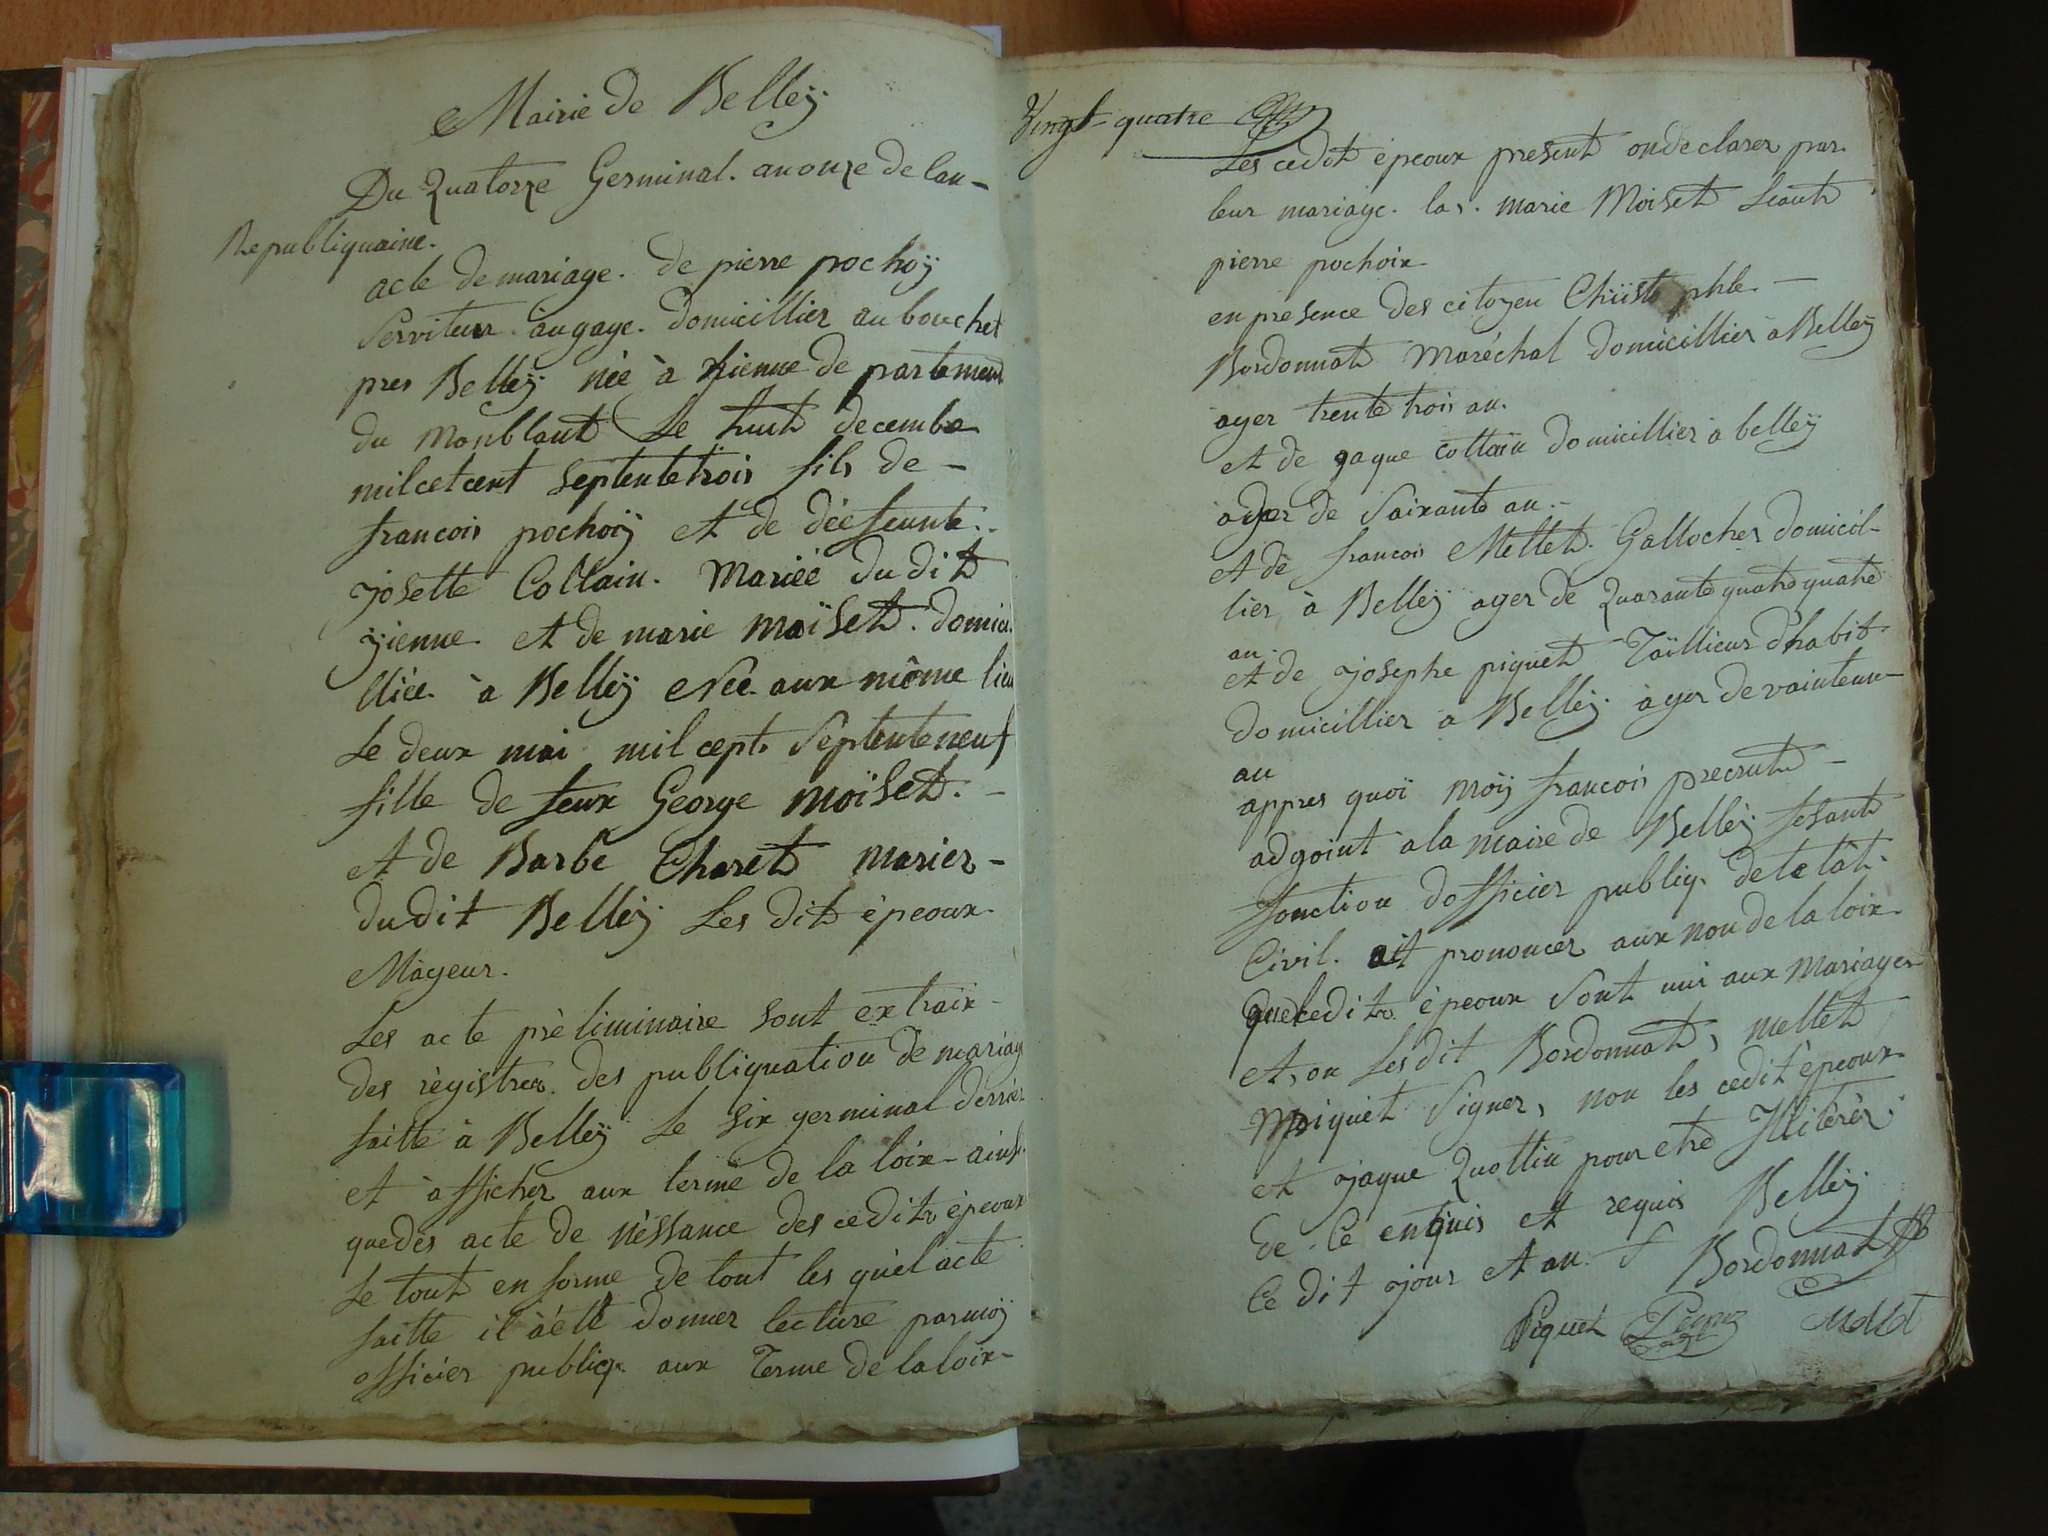 Mairie de Belleÿ
Du Quatorze Germinal. an onze de lan-
Republiquaine.
acte de mariage. de pierre pochoÿ
Serviteur àugage. domicillier au bouchet
pres Belleÿ née à yienne de partement
du monblant Le huit decembe
milcetcent septentetrois fils de -
francois pochoÿ et de déefeunte.
josette Collain. Mariéé du dit
yienne et de marie moïset. domici
lliée à Belleÿ née aux même lieu
Le deux mai mil cept. Septenteneuf
fille de feux George moïset. -
et de Barbe Charet marier -
dudit Belleÿ Les dit épeoux
Màgeur.
Les acte prèliminaire sont extraix
des règistres des publiquation de mariag
faitte à Belleÿ Le six germinal dernier
et àfficher aux terme de la loix - ainsi
quedes acte de nèssance des cedits épeoux
Le tout en forme de tout les quèl acte
faitte il àété donner lecture parmoÿ
officier publiq. aux Terme de la loix -
Vingt-quatre
Les cedit épeoux present on declarer par
leur mariage. la 1. marie Moiset Leautr
pierre pochoix
en presence des citoyen Chiistophle -
Bordonnat Maréchal domicillier à Belleÿ
àger trente trois an.
et de jaque Cottain domicillier a belleÿ
àger de Soixante an. -
et de francois Mellet. Gallocher domicil-
lier à Belleÿ ager de Quarante quatre quatre
an.
et de josephe piquet Taillieur d'habit
domicillier a Belleÿ àger de vainteun -
an
appres quoi moÿ francois precrut -
adjoint a la maire de Belleÿ fesant
fonction dofficier publiq. de letât
Civil. ait prononcer aux non de la loix
quel cedit épeoux sont uni aux mariager
et, on Les dit Bordonnat, mellet
piquet Signer, non les cedit épeoux
et jaque Quottin pour etre Illitérér
de Ce enquis et requis Belleÿ
Ce dit jour et an.
Bordonnat
Piquet
Mellet